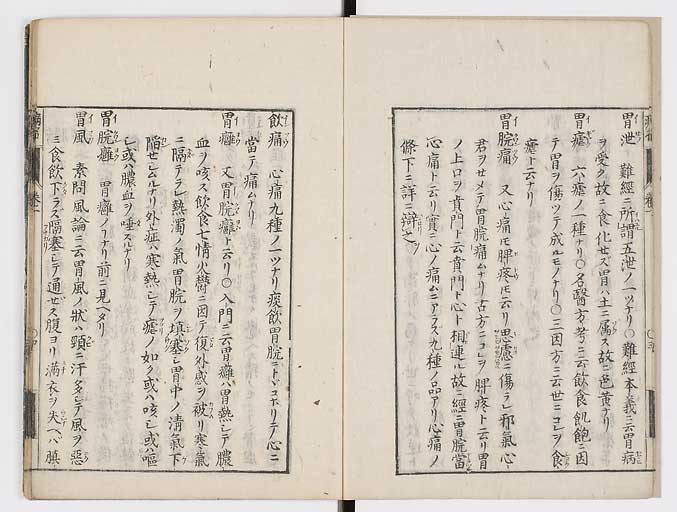 胃泄　難經ニ所謂五泄ノ一ツナリ○難經本義ニ云胃病
ヲ受ク故ニ食化セス胃ハ土ニ属ス故ニ色黄ナリ
胃瘧　六瘧ノ一種ナリ○名醫方考ニ云飲食飢飽ニ因
テ胃ヲ傷ツテ成ルモノナリ○三因方ニ云世ニコレヲ食
瘧ト云ナリ
胃脘痛　又心痛トモ脾疼トモ云リ思慮ニ傷ラレ邪氣心
君ヲセメテ胃脘痛ムナリ古方ニコレヲ脾疼ト云リ胃
ノ上口ヲ賁門ト云賁門ト心ト相連ル故ニ經ニ胃脘當
心痛ト云リ實ニ心ノ痛ムニアラス九種ノ品アリ心痛ノ
條下ニ詳ニ辯之
飲痛　心痛九種ノ一ツナリ痰飲胃脘ニトドコホリテ心ニ
當テ痛ムナリ
胃癰　又胃脘癰ト云リ○入門ニ云胃癰ハ胃熱シテ膿
血ヲ咳ス飲食七情火鬱ニ因テ復外感ヲ被リ寒氣
ニ隔テラレ熱濁ノ氣胃脘ヲ填塞シ胃中ノ清氣下
陥セシムルナリ外症ハ寒熱シテ瘧ノ如ク或ハ咳シ或ハ嘔
シ或ハ膿血ヲ唾スルナリ
胃脘癰　胃癰ノナリ前ニ見ヘタリ
胃風　素問風論ニ云胃風ノ狀ハ頸ニ汗多シテ風ヲ惡
ミ食飲下ラス隔塞シテ通セス腹ヨリ満衣ヲ失ヘハ䐜